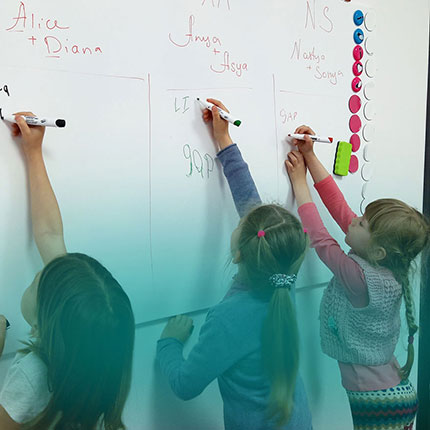 Alice
+ Diana
Anya
+ Asya
NS
Nastya
+ Sonya
LI
gap
gap